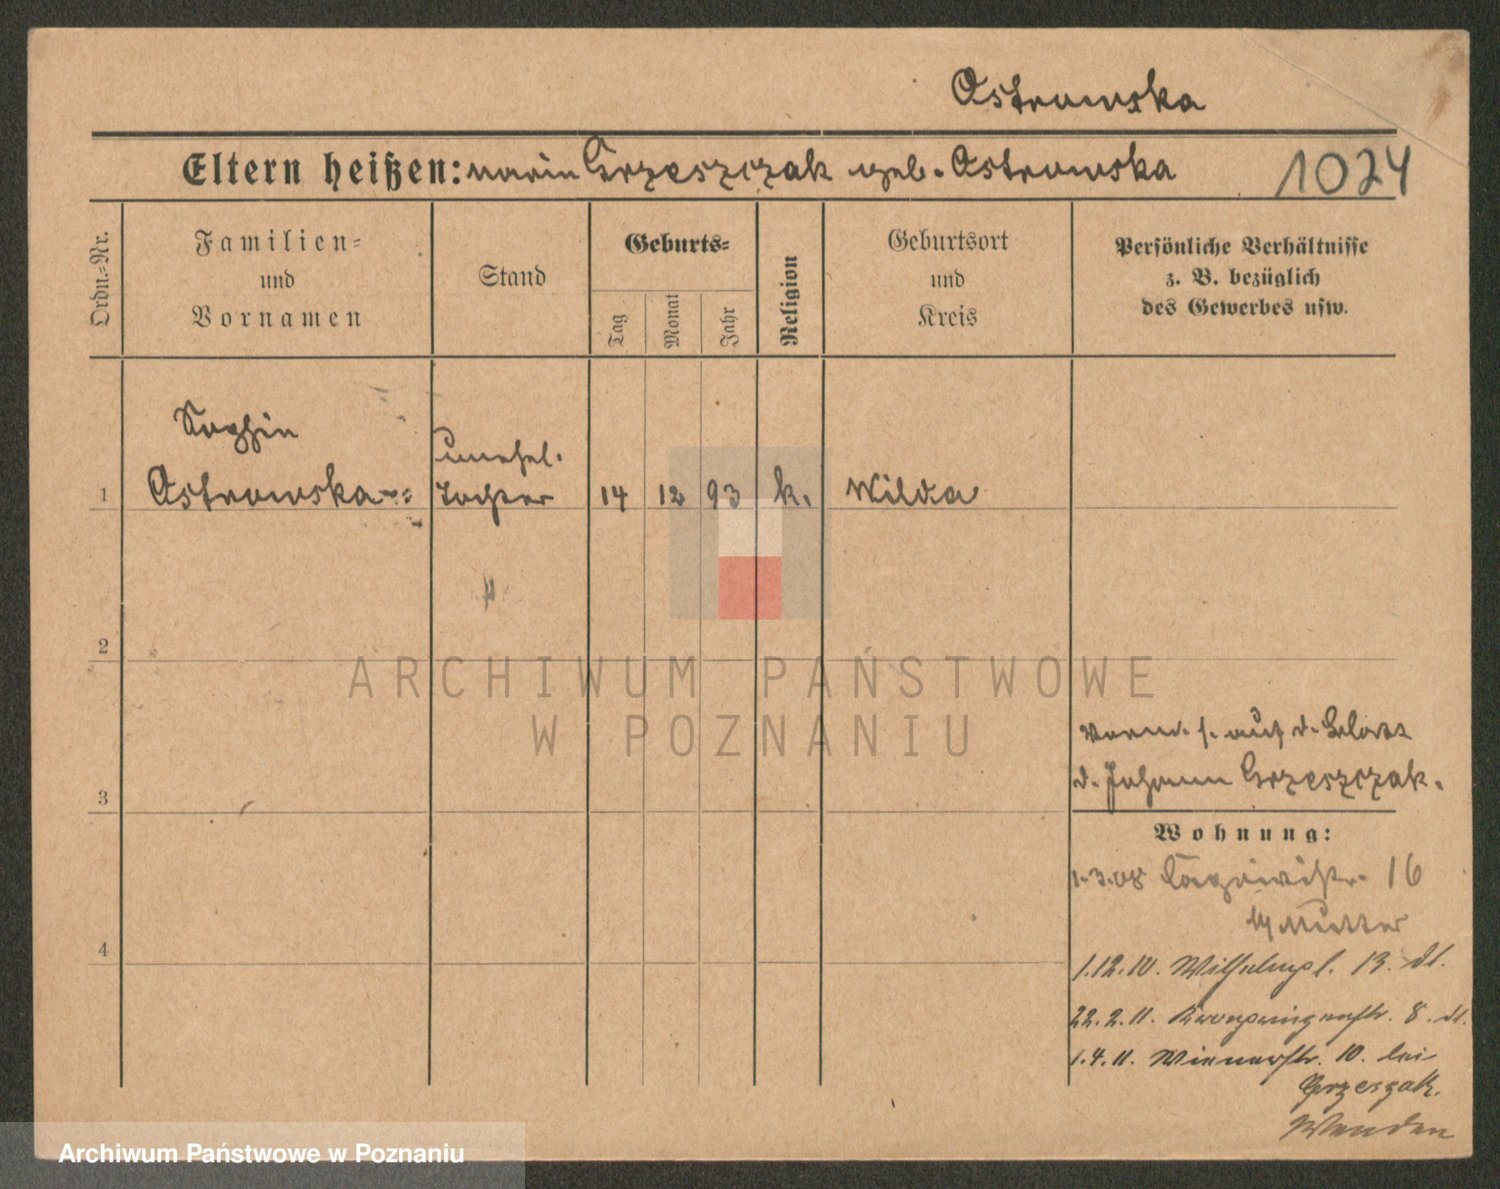 Ostrowska
Eltern heißen: Marie Grzeszczak geb. Ostrowska
1024
Ordn.-Nr.
Familien-
und
Vornamen
Stand
Geburts-
Tag
Monat
Jahr
Religion
Geburtsort
und
Kreis
Persönliche Verhältnisse
z. B. bezüglich
des Gewerbes usw.
Sophie
unehel.
1 Ostrowska Tochter 14 12 93 k. Wilda
2
ARCHIWUM PAŃSTWOWE
W POZNANIU
auf d.
d. Johann Grzeszczak.
3
Wohnung:
1.3.08 16
Mutter
4
1.12.10. Wilhelmpl. 13. dl.
22.2.11. Kronprinzenstr. 8. dl.
1.4.11. Wienerstr. 10. bei
Grzeszak.
Archiwum Państwowe w Poznaniu